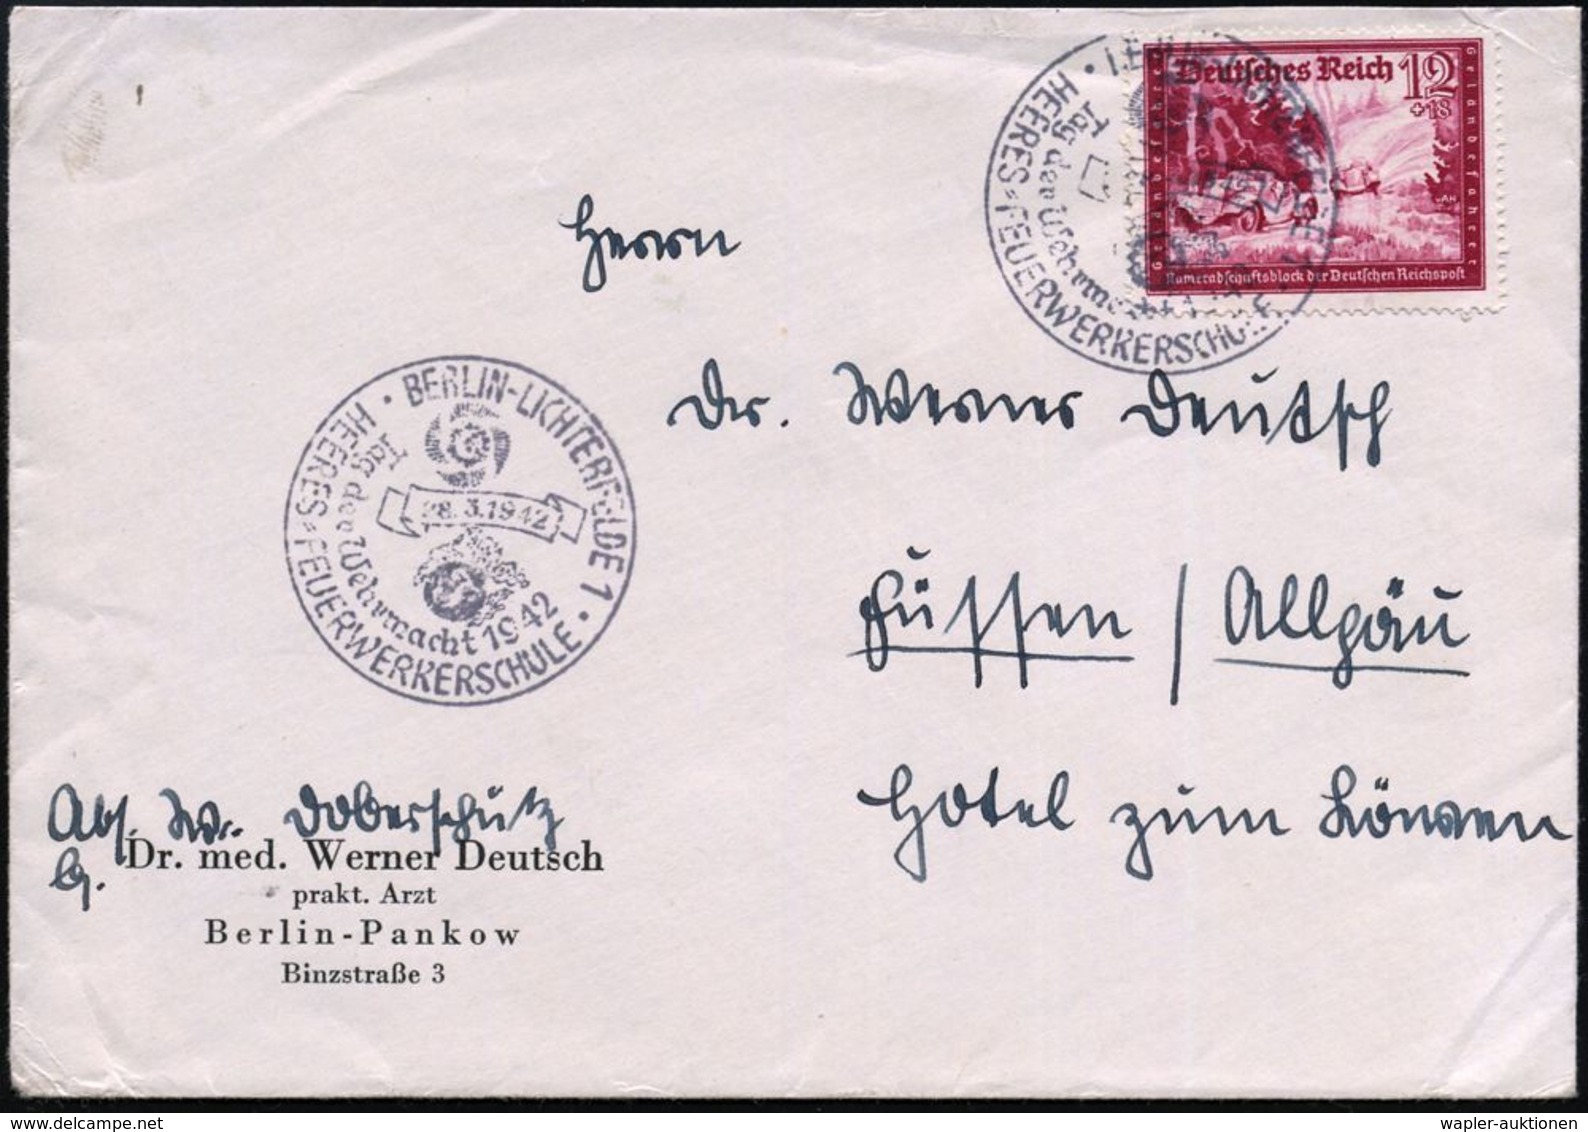 Deutsches Reich 12
+18
Geländefahrer
Geländefahrer
Kameradschaftsblock der Deutschen Reichspost
HEERES-FEUERWERKERSCHULE
Tag der Wehrmacht
Herrn
Dr. Werner Deutsch
Füssen / Allgäu
Hotel zum Löwen
BERLIN-LICHTERFELDE 1
HEERES-FEUERWERKERSCHULE
Tag der Wehrmacht 1942
28.3.1942
Abs. W. Doberschütz
Dr. med. Werner Deutsch
prakt. Arzt
Berlin-Pankow
Binzstraße 3
wapler-auktionen